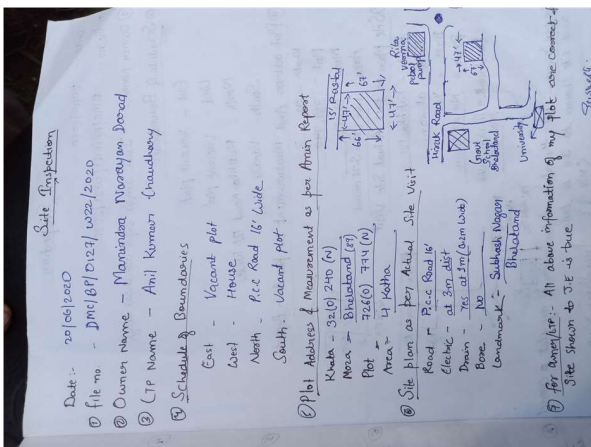 Site Inspection
Date:- 20/06/2020
① File no. - DMC/BP/0127/W22/2020
② Owner Name - Manindra Narayan Darad
③ LTP Name - Anil Kumar Chaudhary
④ Schedule of Boundaries
East - Vacant Plot
West - House
North - P.C.C Road 16' Wide
South - Vacant Plot
⑤ Plot Address & Measurement as per Amin Report
Khata - 32(O) 240 (N)
Moza - Bhelatand (89)
Plot - 726(O) 774 (N)
Area - 4 Katha
15' Rasta
47'
66'
67'
47'
⑥ Site plan as per Actual Site Visit
Road - P.C.C Road 16'
Electric - at 3m dist
Drain - Yes at 1m (0.2m Wide)
Bore - No
Landmark - Subhash Nagar
Bhelatand
Hirak Road
Rita
Verma
petrol
pump
47'
67'
Govt
School
Bhelatand
University
⑦ For amin/LTP:- All above information of my plot are correct &
Site shown to J.E is true